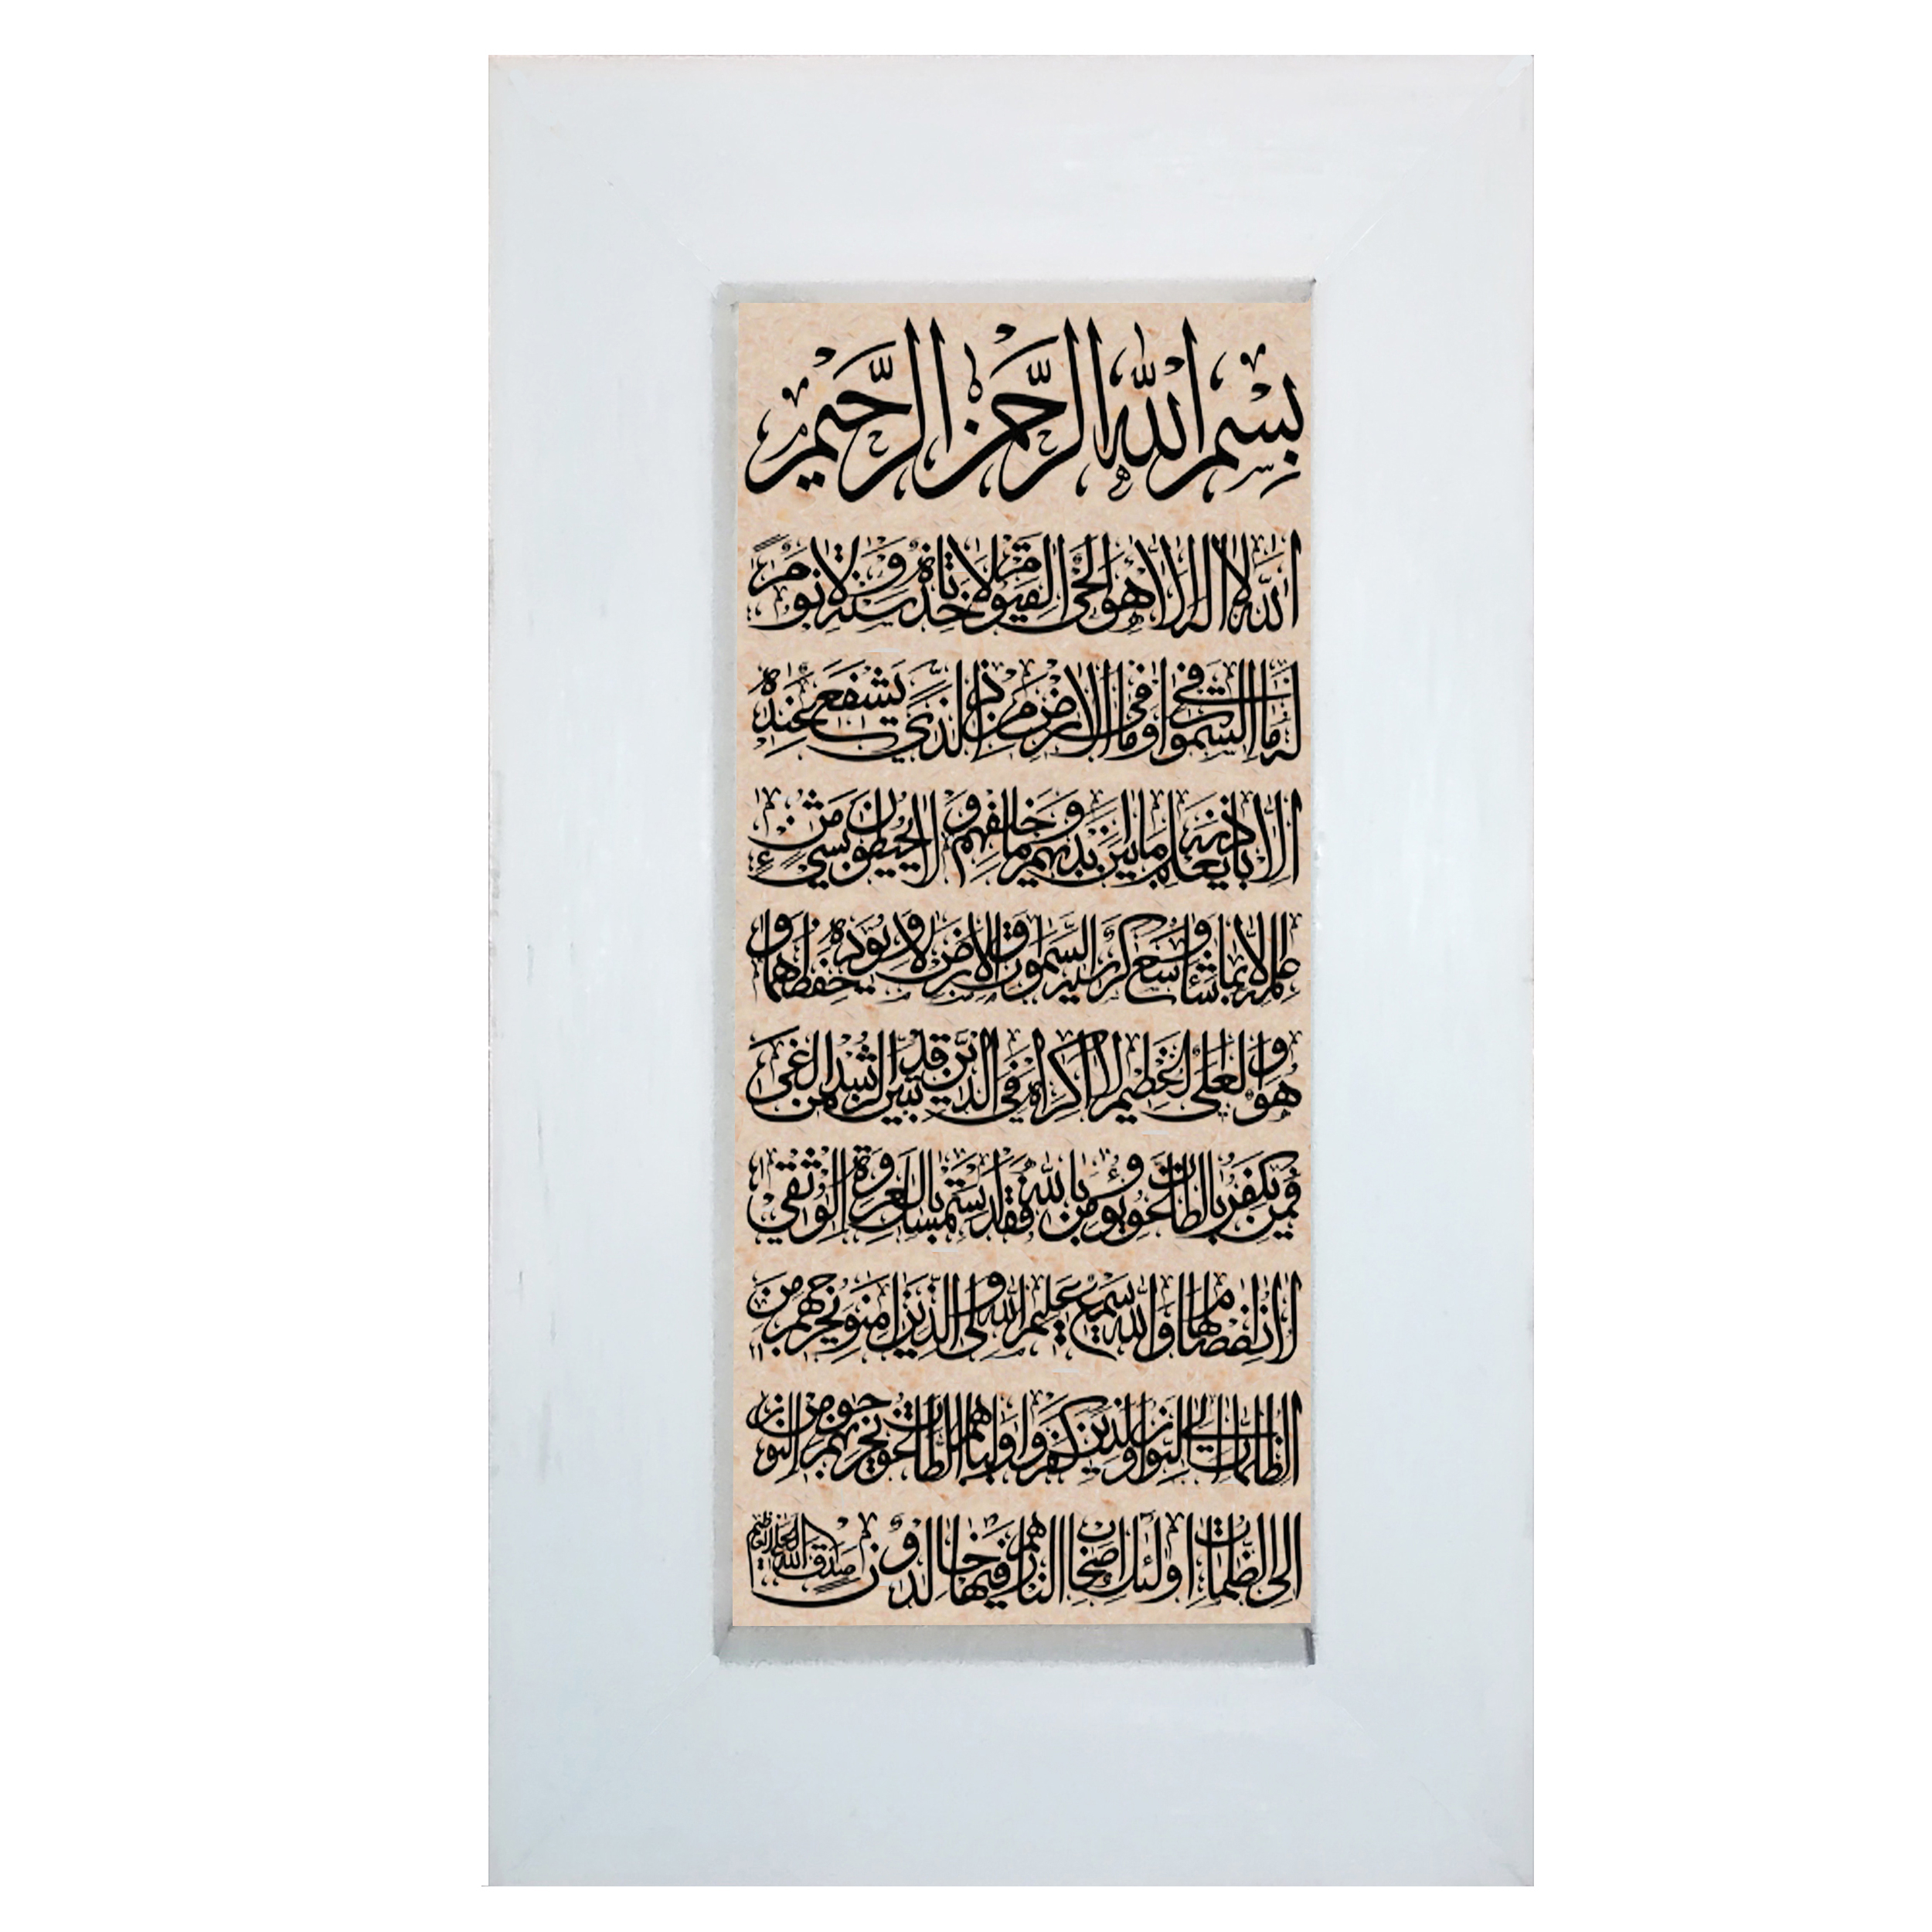 بسم الله الرحمن الرحيم
الله لا اله الا هو الحي القيوم لا تاخذه سنة ولا نوم
له ما في السموات وما في الارض من ذا الذي يشفع عنده
الا باذنه يعلم ما بين يديهم وما خلفهم ولا يحيطون بشيء من
علمه الا بما شاء وسع كرسيه السموات والارض ولا يؤده حفظهما و
هو العلي العظيم لا اكراه في الدين قد تبين الرشد من الغي
فمن يكفر بالطاغوت ويؤمن بالله فقد استمسك بالعروة الوثقى
لا انفصام لها والله سميع عليم الله ولي الذين امنوا يخرجهم من
الظلمات الى النور والذين كفروا اولياهم الطاغوت يخرجونهم من النور
الى الظلمات اولئك اصحاب النار هم فيها خالدون صدق الله العلي العظيم